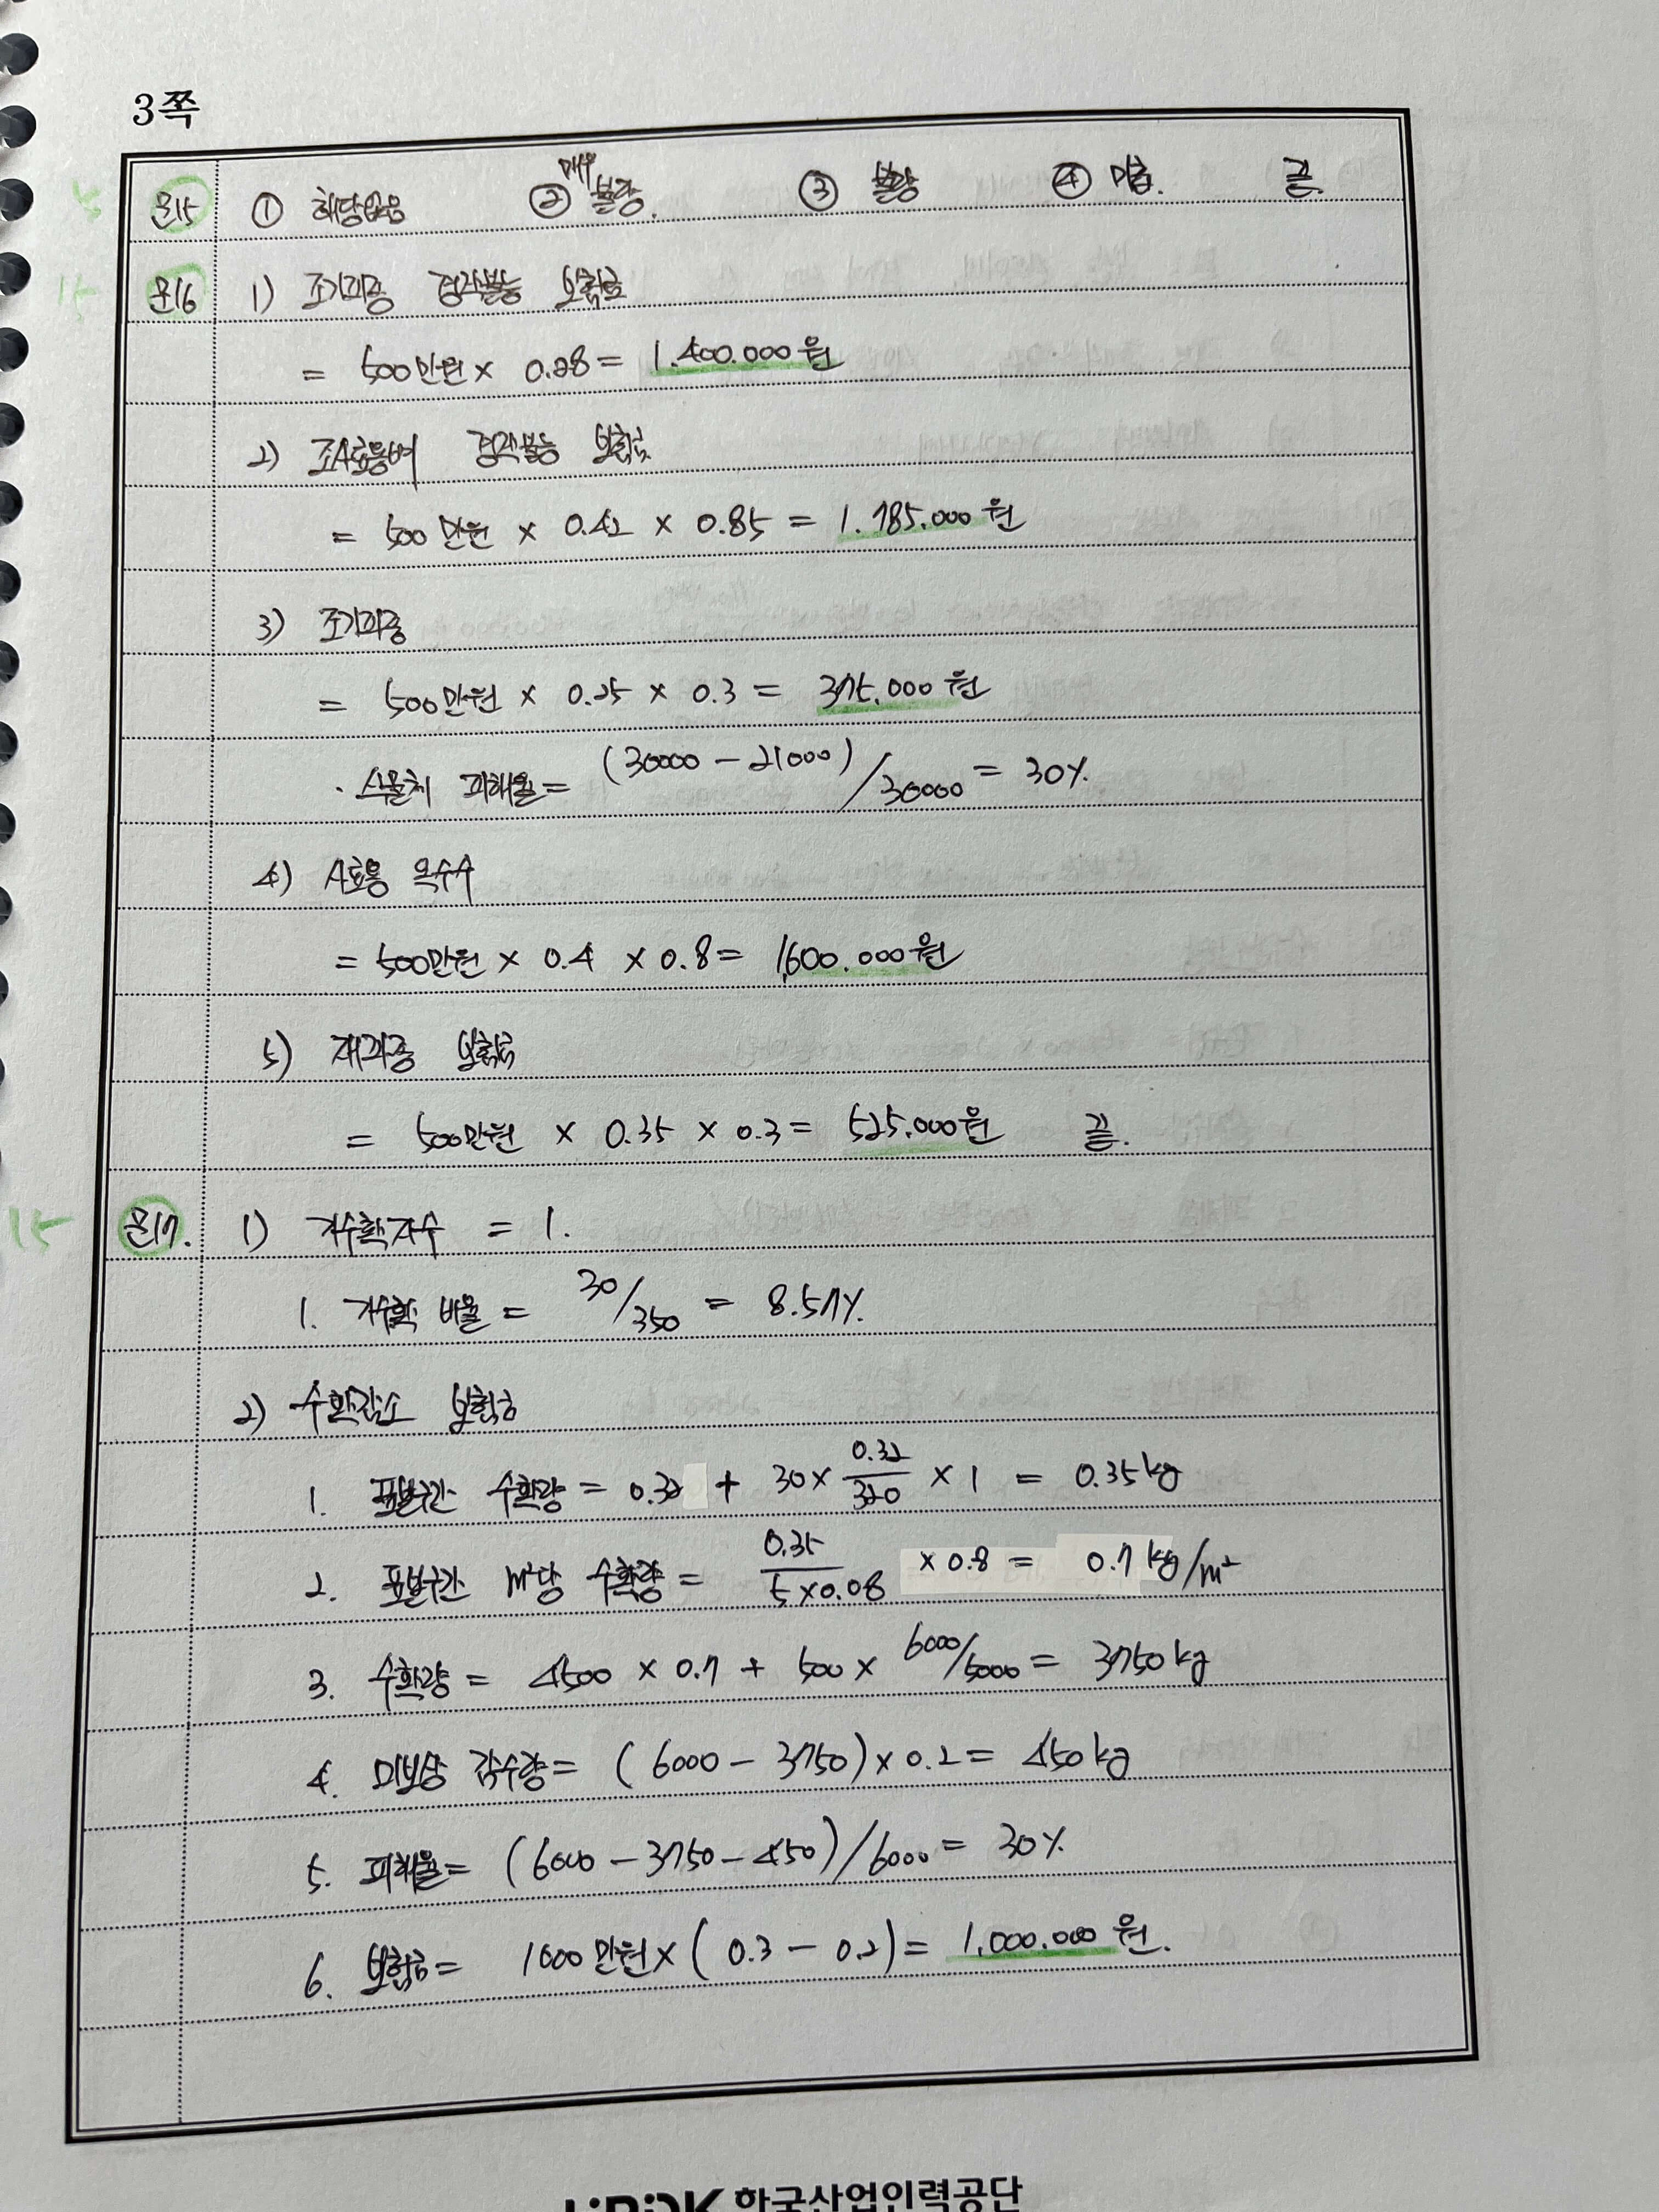 3쪽
5 문15 ① 해당없음 ② 매우 불량. ③ 불량 ④ 미흡. 끝.
15 문16 1) 조기파종 경작불능 보험금
= 500만원 × 0.28 = 1.400.000원
2) 조사료용벼 경작불능 보험금
= 500만원 × 0.42 × 0.85 = 1.785.000원
3) 조기파종
= 500만원 × 0.25 × 0.3 = 375.000원
· 식물체 피해율 = (30000 - 21000) / 30000 = 30%.
4) 사료용 옥수수
= 500만원 × 0.4 × 0.8 = 1,600.000원
5) 재파종 보험금
= 500만원 × 0.35 × 0.3 = 525.000원 끝.
15 문17. 1) 기수확지수 = 1.
1. 기수확 비율 = 30/350 = 8.57%.
2) 수확감소 보험금
1. 표본구간 수확량 = 0.32 + 30 × 0.32/320 × 1 = 0.35kg
2. 표본구간 m²당 수확량 = 0.35/5×0.08 × 0.8 = 0.7 kg/m²
3. 수확량 = 4500 × 0.7 + 500 × 6000/5000 = 3750kg
4. 미보상 감수량 = (6000 - 3750) × 0.2 = 450kg
5. 피해율 = (6000 - 3750 - 450)/6000 = 30%.
6. 보험금 = 1000만원 × (0.3 - 0.2) = 1,000.000원.
한국산업인력공단